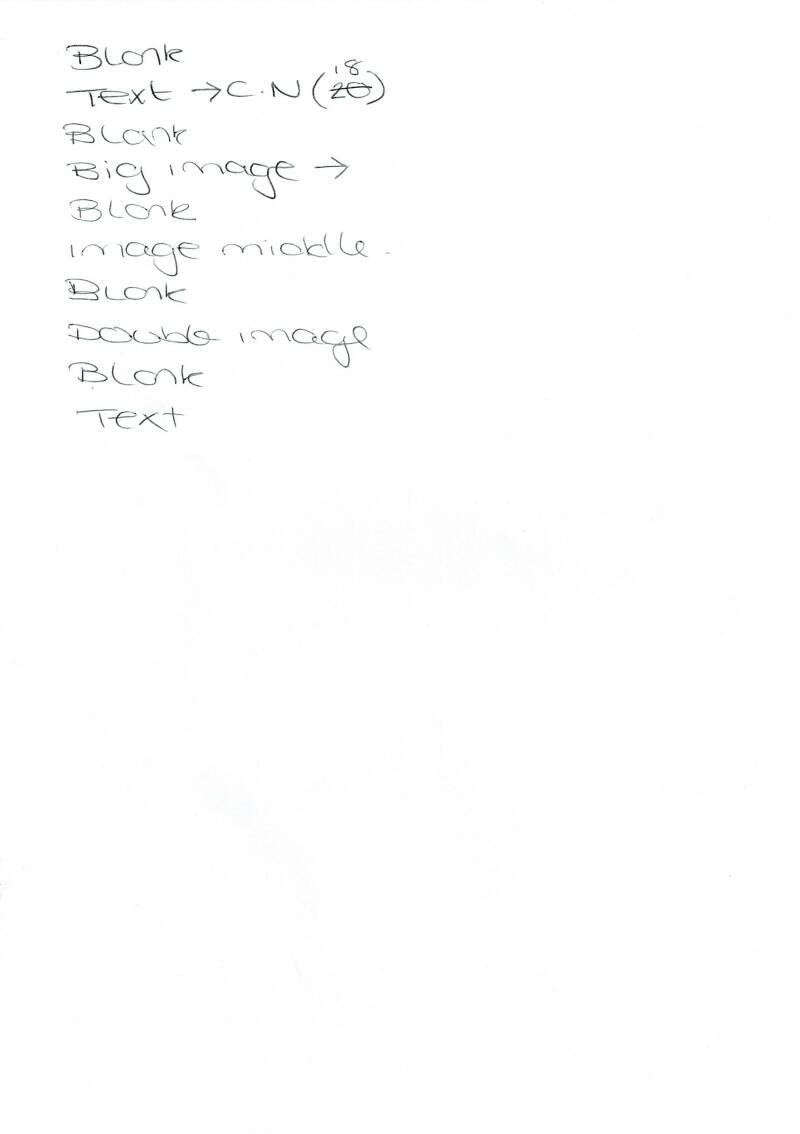 Blank
Text → C.N (18 ~~20~~)
Blank
Big image →
Blank
image middle.
Blank
Double image
Blank
Text